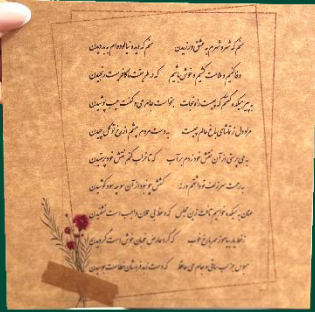 منم که شهره شهرم به عشق ورزیدن منم که دیده نیالوده‌ام به بد دیدن
وفا کنیم و ملامت کشیم و خوش باشیم که در طریقت ما کافریست رنجیدن
به پیر میکده گفتم که چیست راه نجات بخواست جام می و گفت عیب پوشیدن
مراد دل ز تماشای باغ عالم چیست به دست مردم چشم از رخ تو گل چیدن
به می پرستی از آن نقش خود زدم بر آب که تا خراب کنم نقش خود پرستیدن
به رحمت سر زلف تو واثقم ورنه کشش چو نبود از آن سو چه سود کوشیدن
عنان به میکده خواهیم تافت زین مجلس که وعظ بی عملان واجب است نشنیدن
ز خط یار بیاموز مهر با رخ خوب که گرد عارض خوبان خوش است گردیدن
مبوس جز لب ساقی و جام می حافظ که دست زهد فروشان خطاست بوسیدن